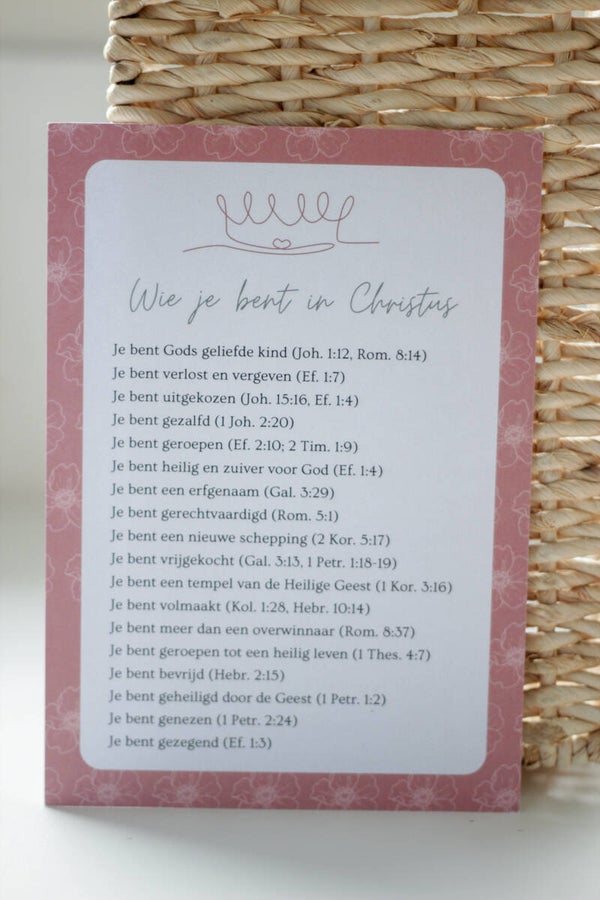 Wie je bent in Christus
Je bent Gods geliefde kind (Joh. 1:12, Rom. 8:14)
Je bent verlost en vergeven (Ef. 1:7)
Je bent uitgekozen (Joh. 15:16, Ef. 1:4)
Je bent gezalfd (1 Joh. 2:20)
Je bent geroepen (Ef. 2:10; 2 Tim. 1:9)
Je bent heilig en zuiver voor God (Ef. 1:4)
Je bent een erfgenaam (Gal. 3:29)
Je bent gerechtvaardigd (Rom. 5:1)
Je bent een nieuwe schepping (2 Kor. 5:17)
Je bent vrijgekocht (Gal. 3:13, 1 Petr. 1:18-19)
Je bent een tempel van de Heilige Geest (1 Kor. 3:16)
Je bent volmaakt (Kol. 1:28, Hebr. 10:14)
Je bent meer dan een overwinnaar (Rom. 8:37)
Je bent geroepen tot een heilig leven (1 Thes. 4:7)
Je bent bevrijd (Hebr. 2:15)
Je bent geheiligd door de Geest (1 Petr. 1:2)
Je bent genezen (1 Petr. 2:24)
Je bent gezegend (Ef. 1:3)